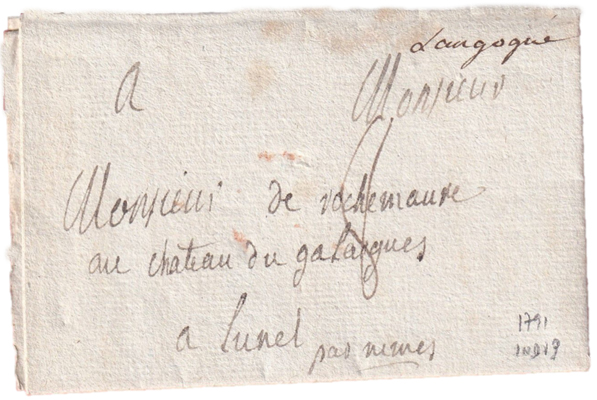 Langogne
A Monsieur
Monsieur de rochemaure
au chateau du galargues
a Lunel par nimes
1791